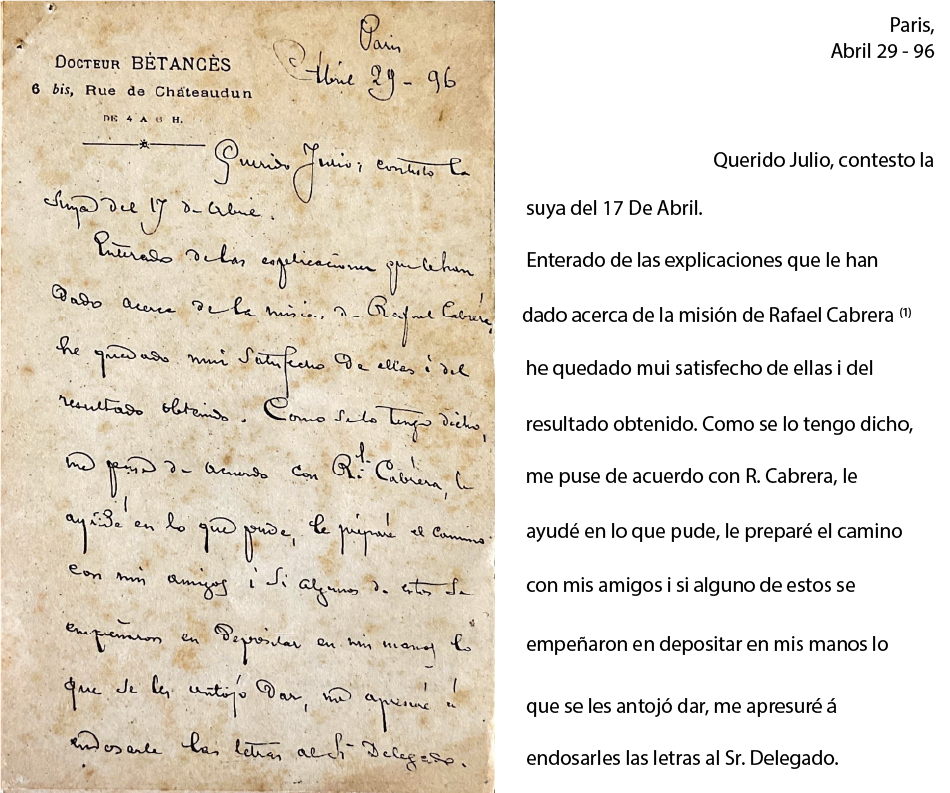 Paris
Abril 29 - 96
DOCTEUR BÉTANCÈS
6 bis, Rue de Châteaudun
DE 4 A 6 H.
Querido Julio; contesto la
suya del 17 de Abril.
Enterado de las esplicaciones que le han
dado acerca de la mision de Rafael Cabrera,
he quedado mui satisfecho de ellas i del
resultado obtenido. Como se lo tengo dicho,
me puse de acuerdo con Rl. Cabrera, le
ayudé en lo que pude, le preparé el camino
con mis amigos i si algunos de estos se
empeñaron en depositar en mis manos lo
que se les antojó dar, me apresuré á
endosarle las letras al Sr Delegado.
Paris,
Abril 29 - 96
Querido Julio, contesto la
suya del 17 De Abril.
Enterado de las explicaciones que le han
dado acerca de la misión de Rafael Cabrera (1)
he quedado mui satisfecho de ellas i del
resultado obtenido. Como se lo tengo dicho,
me puse de acuerdo con R. Cabrera, le
ayudé en lo que pude, le preparé el camino
con mis amigos i si alguno de estos se
empeñaron en depositar en mis manos lo
que se les antojó dar, me apresuré á
endosarles las letras al Sr. Delegado.